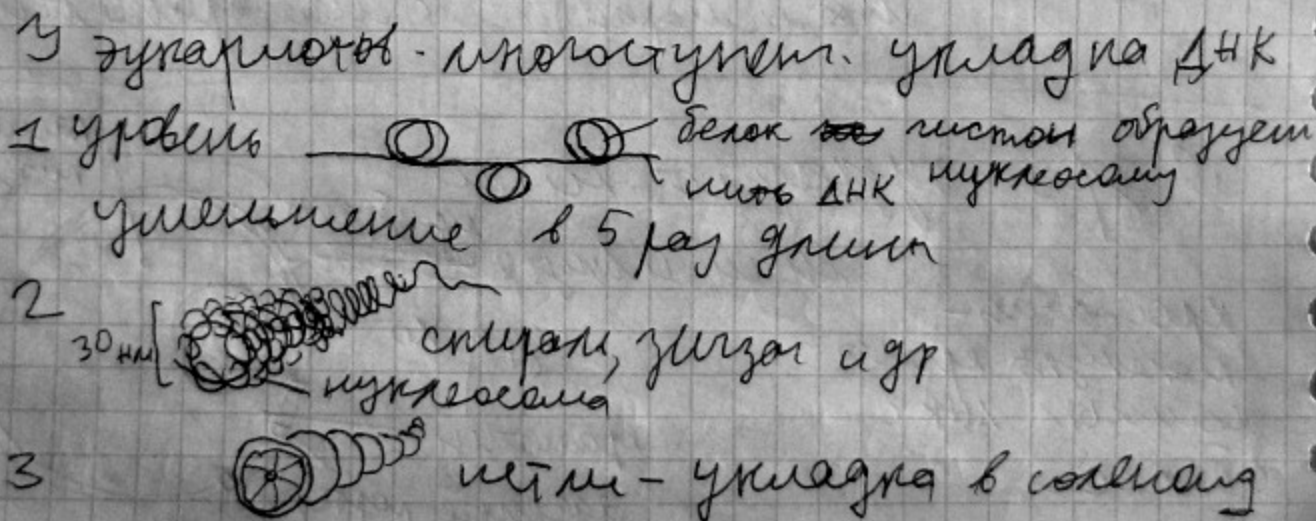 У эукариотов - многоступен. укладка ДНК
1 уровень белок гистон образует
нить ДНК нуклеосому
уменьшение в 5 раз длины
2
30 нм спираль, зигзаг и др
нуклеосома
3 петли - укладка в соленоид